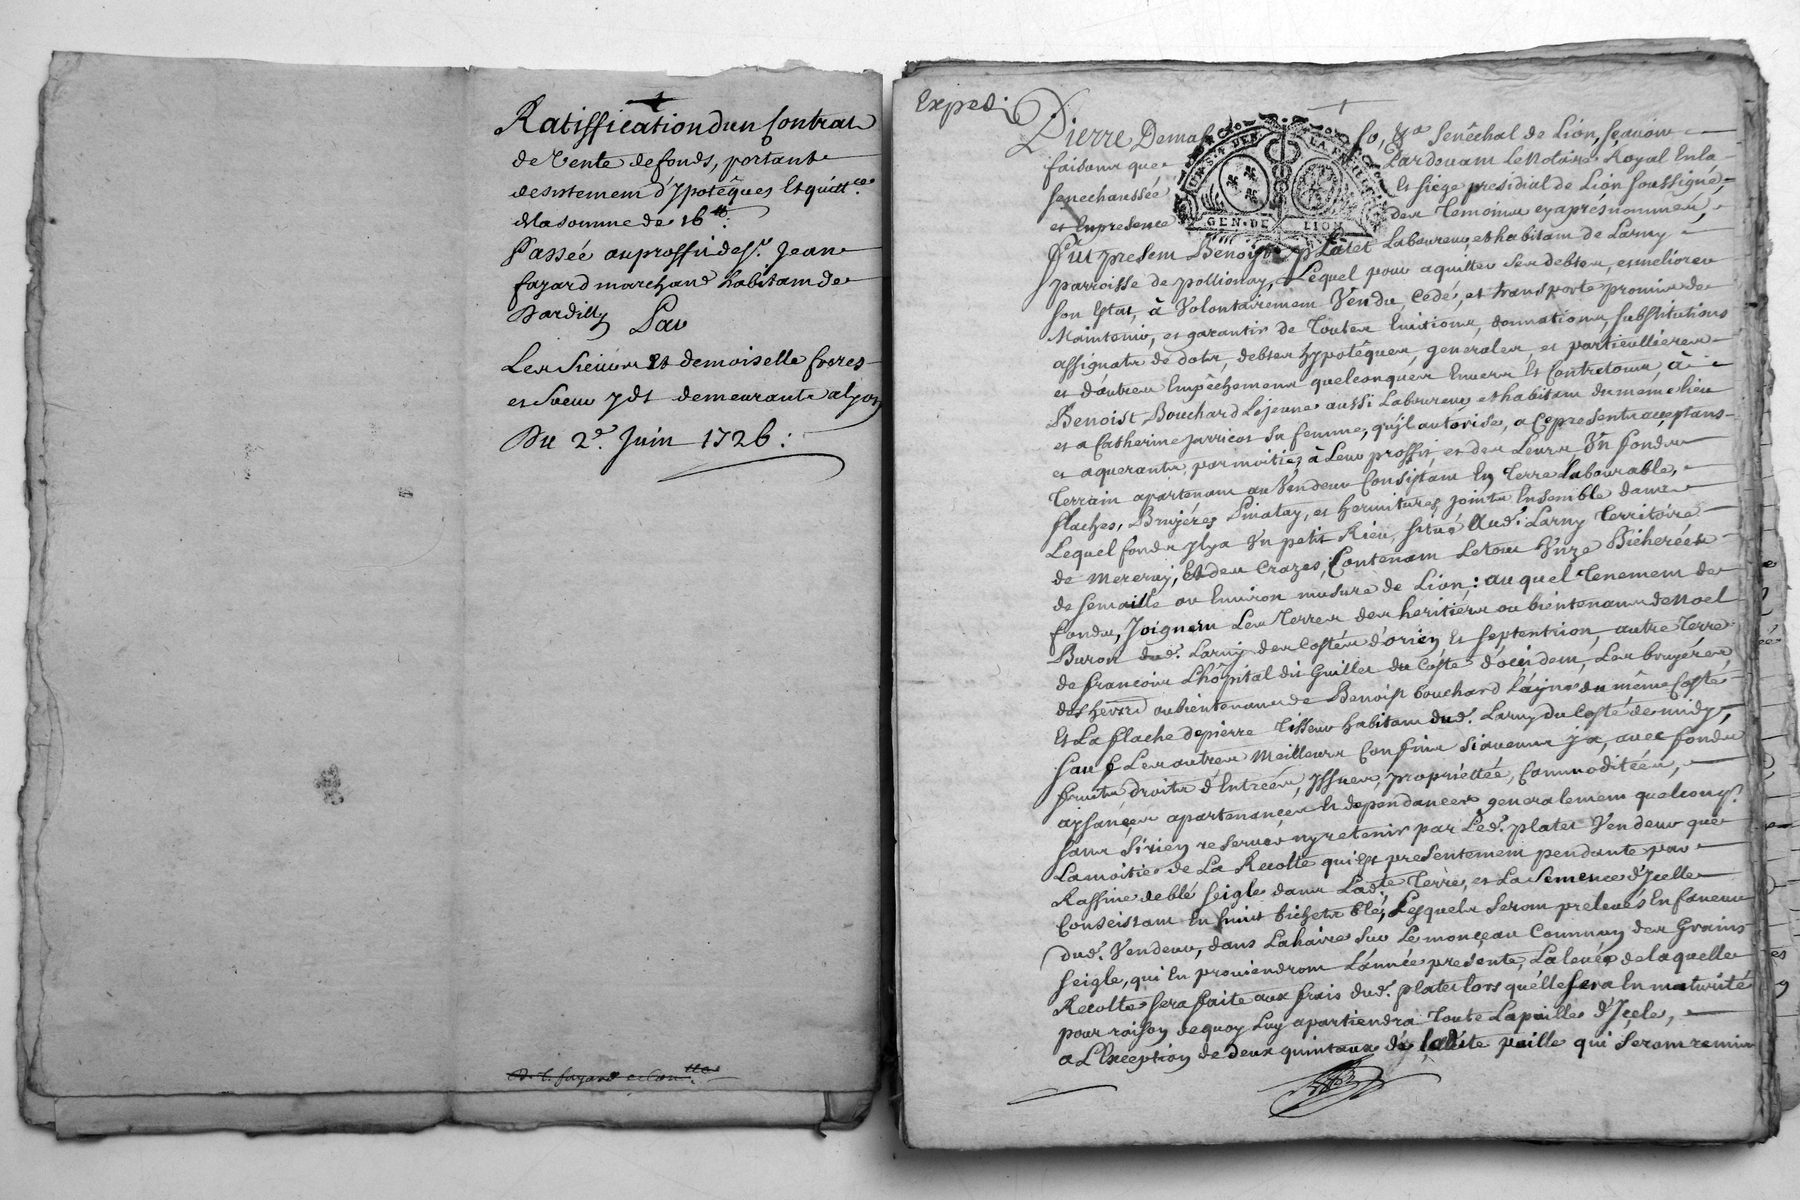 Ratiffication dun Contrat
de Vente de fonds, portant
desistement d'ypotêques Et quitt.ce
de la somme de 16.tt
Passée au proffit de S.r Jean
fayard marchand habitant de
Dardilly Par
Les Sieurs Et demoiselle freres
et Soeur yds demeurants a lyon
Du 2.e Juin 1726 :
Exped:
Pierre Demas so, &a Senêchal de Lion, Sçavoir
faisons que Pardevant Le Notaire Royal En la
Senechaussée Et Siege presidial de Lion Soussigné,
et En presence des Temoins cy aprés nommés,
GEN. DE LION
fut present Benoist Platet Laboureur et habitant de Larny
parroisse de pollionay, Lequel pour aquitter Ses debtes, et meliorer
Son Estat, à Volontairement Vendu Cedé, et transporté promis de
Maintenir, et garantir de Toutes Evitions, donnations, Substitutions
assignats de dots, debtes hypotêques, generales et particullieres
et d'autres Empêchemens quelconques Envers Et Contre tous, à
Benoist Bouchard Lejeune aussi Laboureur et habitant du meme lieu
et a Catherine Jarricot Sa femme, qu'jl autorise, a Ce presents acceptans
et aquerants par moitiez à Leur proffit et des Leurs Vn fonds
Terrain apartenant au Vendeur Consistant En Terre labourable,
flaches, Brujéres Pinatay, et hermitures joints Ensemble dans
Lequel fonds jl y a Vn petit Rieu, Situé Aud. Larny Territoire
de mereruy, Et des Crazes, Contenant Le tout Vnze Bicherées
de Semaille ou Environ mesure de Lion: au quel Tenement de
fonds, Joignent Les Terres des heritiers ou bientenans de Noel
Buron dud. Larny des Costés d'orien Et Septentrion, autre Terre
de francois Lhôpital dit Guillet du Côste d'occident, Les bruyéres
des heritiers ou bientenans de Benoist bouchard L'ayné du même Coste
Et La flache de pierre Tisseur habitant dud. Larny du Costé de midy,
Sauf Les autres Meilleurs Confins Si aucuns y a, avec fonds
fruits, droits d'Entrées, Jssues, propriettée, Commoditées,
aysances apartenances Et dependances generalement quelconq.
Sans Si rien reserver ny retenir par Led. platet Vendeur que
La moitié de La Recolte qui Est presentement pendante par
Raffine de blé Seigle dans Ladte Terre, et La Semence d'Jcelle
Conseistant En huit bichets blé, Lesquels Seront prelevés En faveur
dud. Vendeur, dans Lahaire Sur Le monçeau Commun des Grains
Seigle, qui En proviendront L'année presente, La levée de laquelle
Recolte Sera faite aux frais dud. platet lors qu'elle Sera En maturité
pour raison de quoy Luy apartiendra Toute La paille d'Jcele,
a L'Exception de deux quintaux de ladite paille qui Seront remis